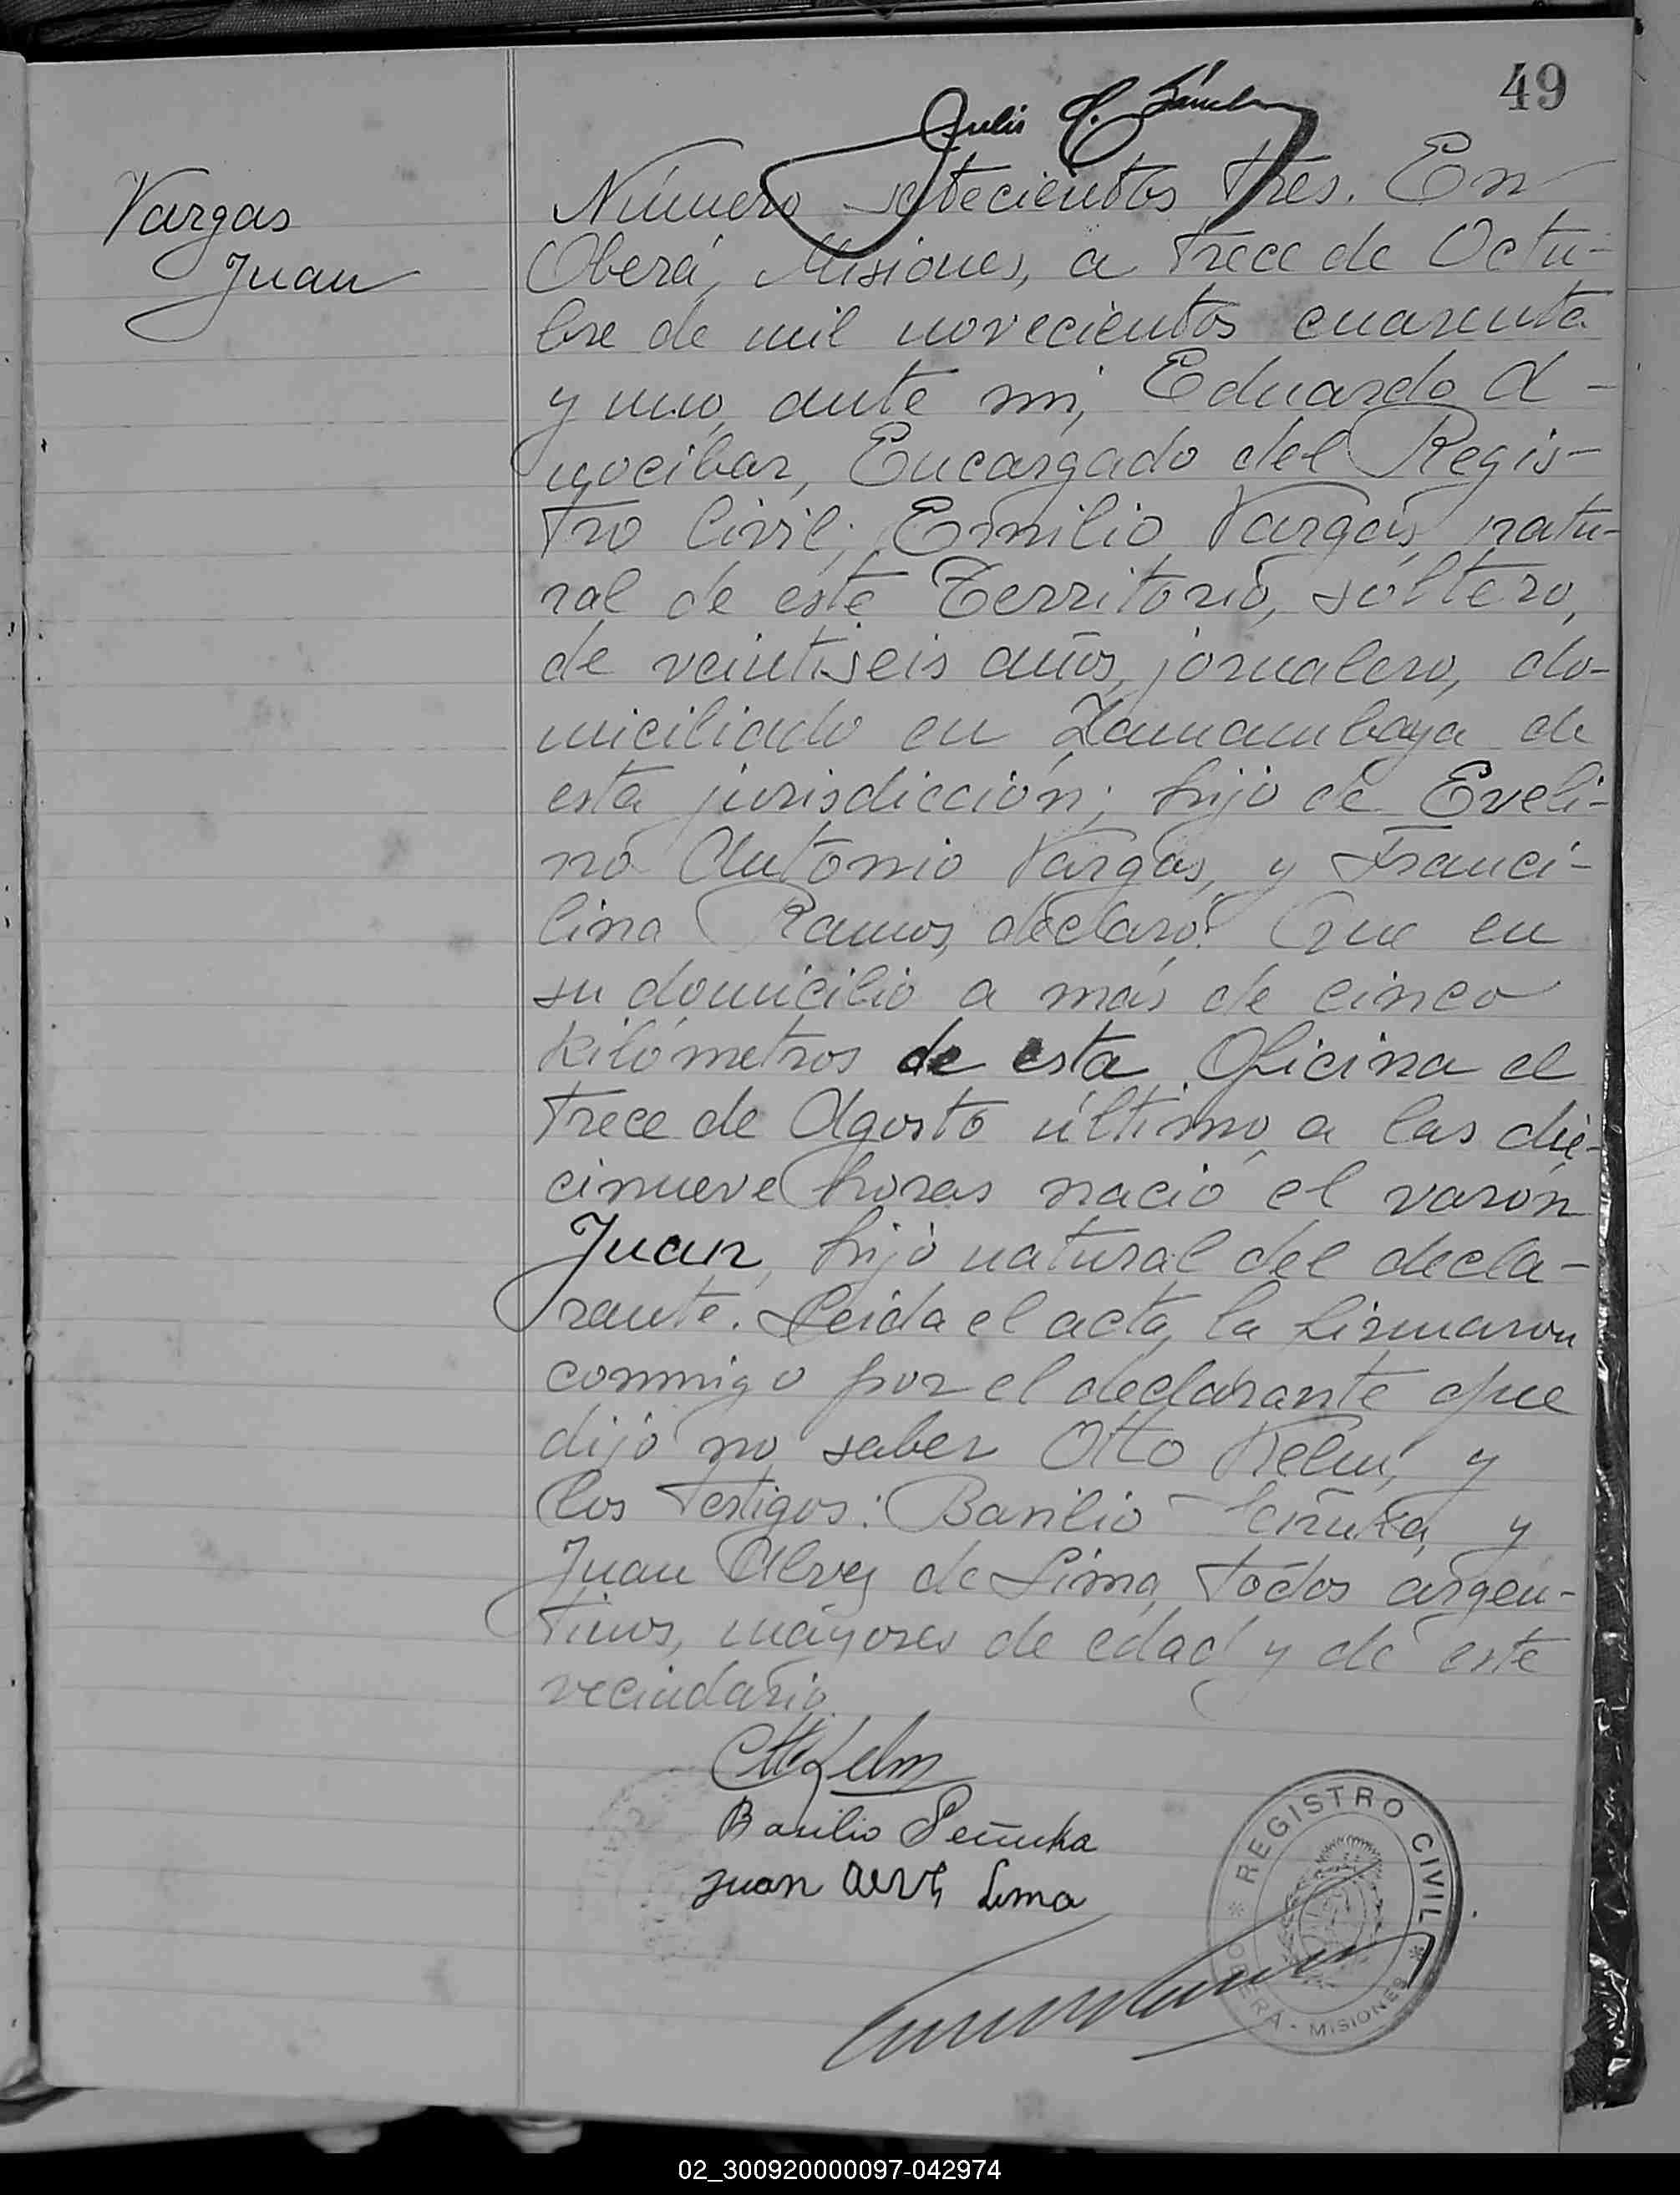 49
Julio C. Sánchez
Vargas
Juan
Número setecientos tres. En
Oberá, Misiones, a trece de Octu-
bre de mil novecientos cuarenta
y uno, ante mi, Eduardo A-
yocibar, Encargado del Regis-
tro Civil; Emilio Vargas, natu-
ral de este Territorio, soltero,
de veintiseis años, jornalero, do-
miciliado en Zamambaya de
esta jurisdicción; hijo de Eveli-
no Antonio Vargas, y Franci-
lina Ramos, declaró: Que en
su domicilio a más de cinco
kilómetros de esta Oficina el
trece de Agosto último a las die-
cinueve horas nació el varón
Juan, hijo natural del decla-
rante. Leida el acta, la firmaron
conmigo por el declarante que
dijo no saber Otto Kelm, y
los testigos: Basilio y
Juan Alves de Lima, todos argen-
tinos, mayores de edad y de este
vecindario.
Otto Kelm
Basilio
Juan Alves Lima
REGISTRO CIVIL
OBERÁ - MISIONES
02_300920000097-042974